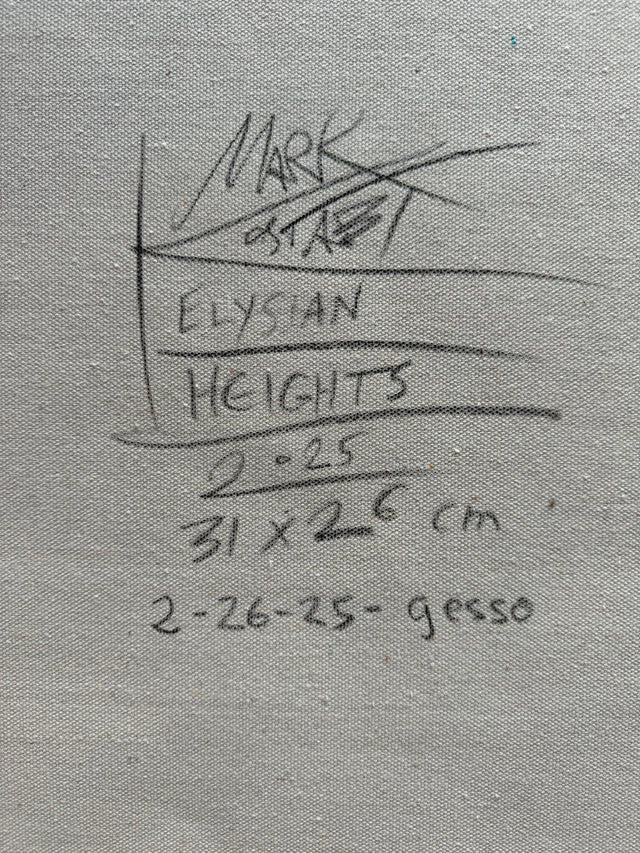 MARK
ELYSIAN
HEIGHTS
2 • 25
31 x 26 cm
2-26-25- gesso